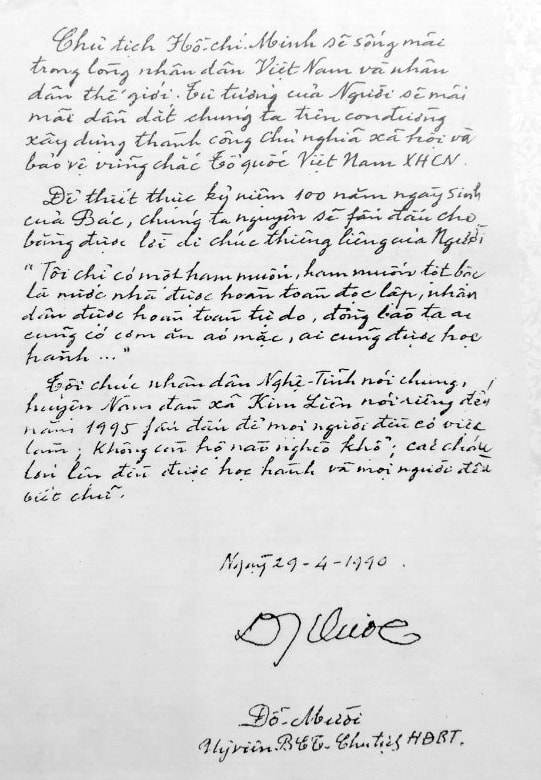 Chủ tịch Hồ-chí-Minh sẽ sống mãi
trong lòng nhân dân Việt Nam và nhân
dân thế giới. Tư tưởng của Người sẽ mãi
mãi dẫn dắt chúng ta trên con đường
xây dựng thành công chủ nghĩa xã hội và
bảo vệ vững chắc Tổ quốc Việt Nam XHCN.
Để thiết thực kỷ niệm 100 năm ngày sinh
của Bác, chúng ta nguyện sẽ fấn đấu cho
bằng được lời di chúc thiêng liêng của Người
"Tôi chỉ có một ham muốn, ham muốn tột bậc
là nước nhà được hoàn toàn độc lập, nhân
dân được hoàn toàn tự do, đồng bào ta ai
cũng có cơm ăn áo mặc, ai cũng được học
hành..."
Tôi chúc nhân dân Nghệ-Tĩnh nói chung,
huyện Nam đàn xã Kim Liên nói riêng đến
năm 1995 fấn đấu để mọi người đều có việc
làm; không còn hộ nào nghèo khổ; các cháu
lớn lên đều được học hành và mọi người đều
biết chữ.
Ngày 29-4-1990.
Đỗ-Mười
Uỷ viên BCT-Chủ tịch HĐBT.